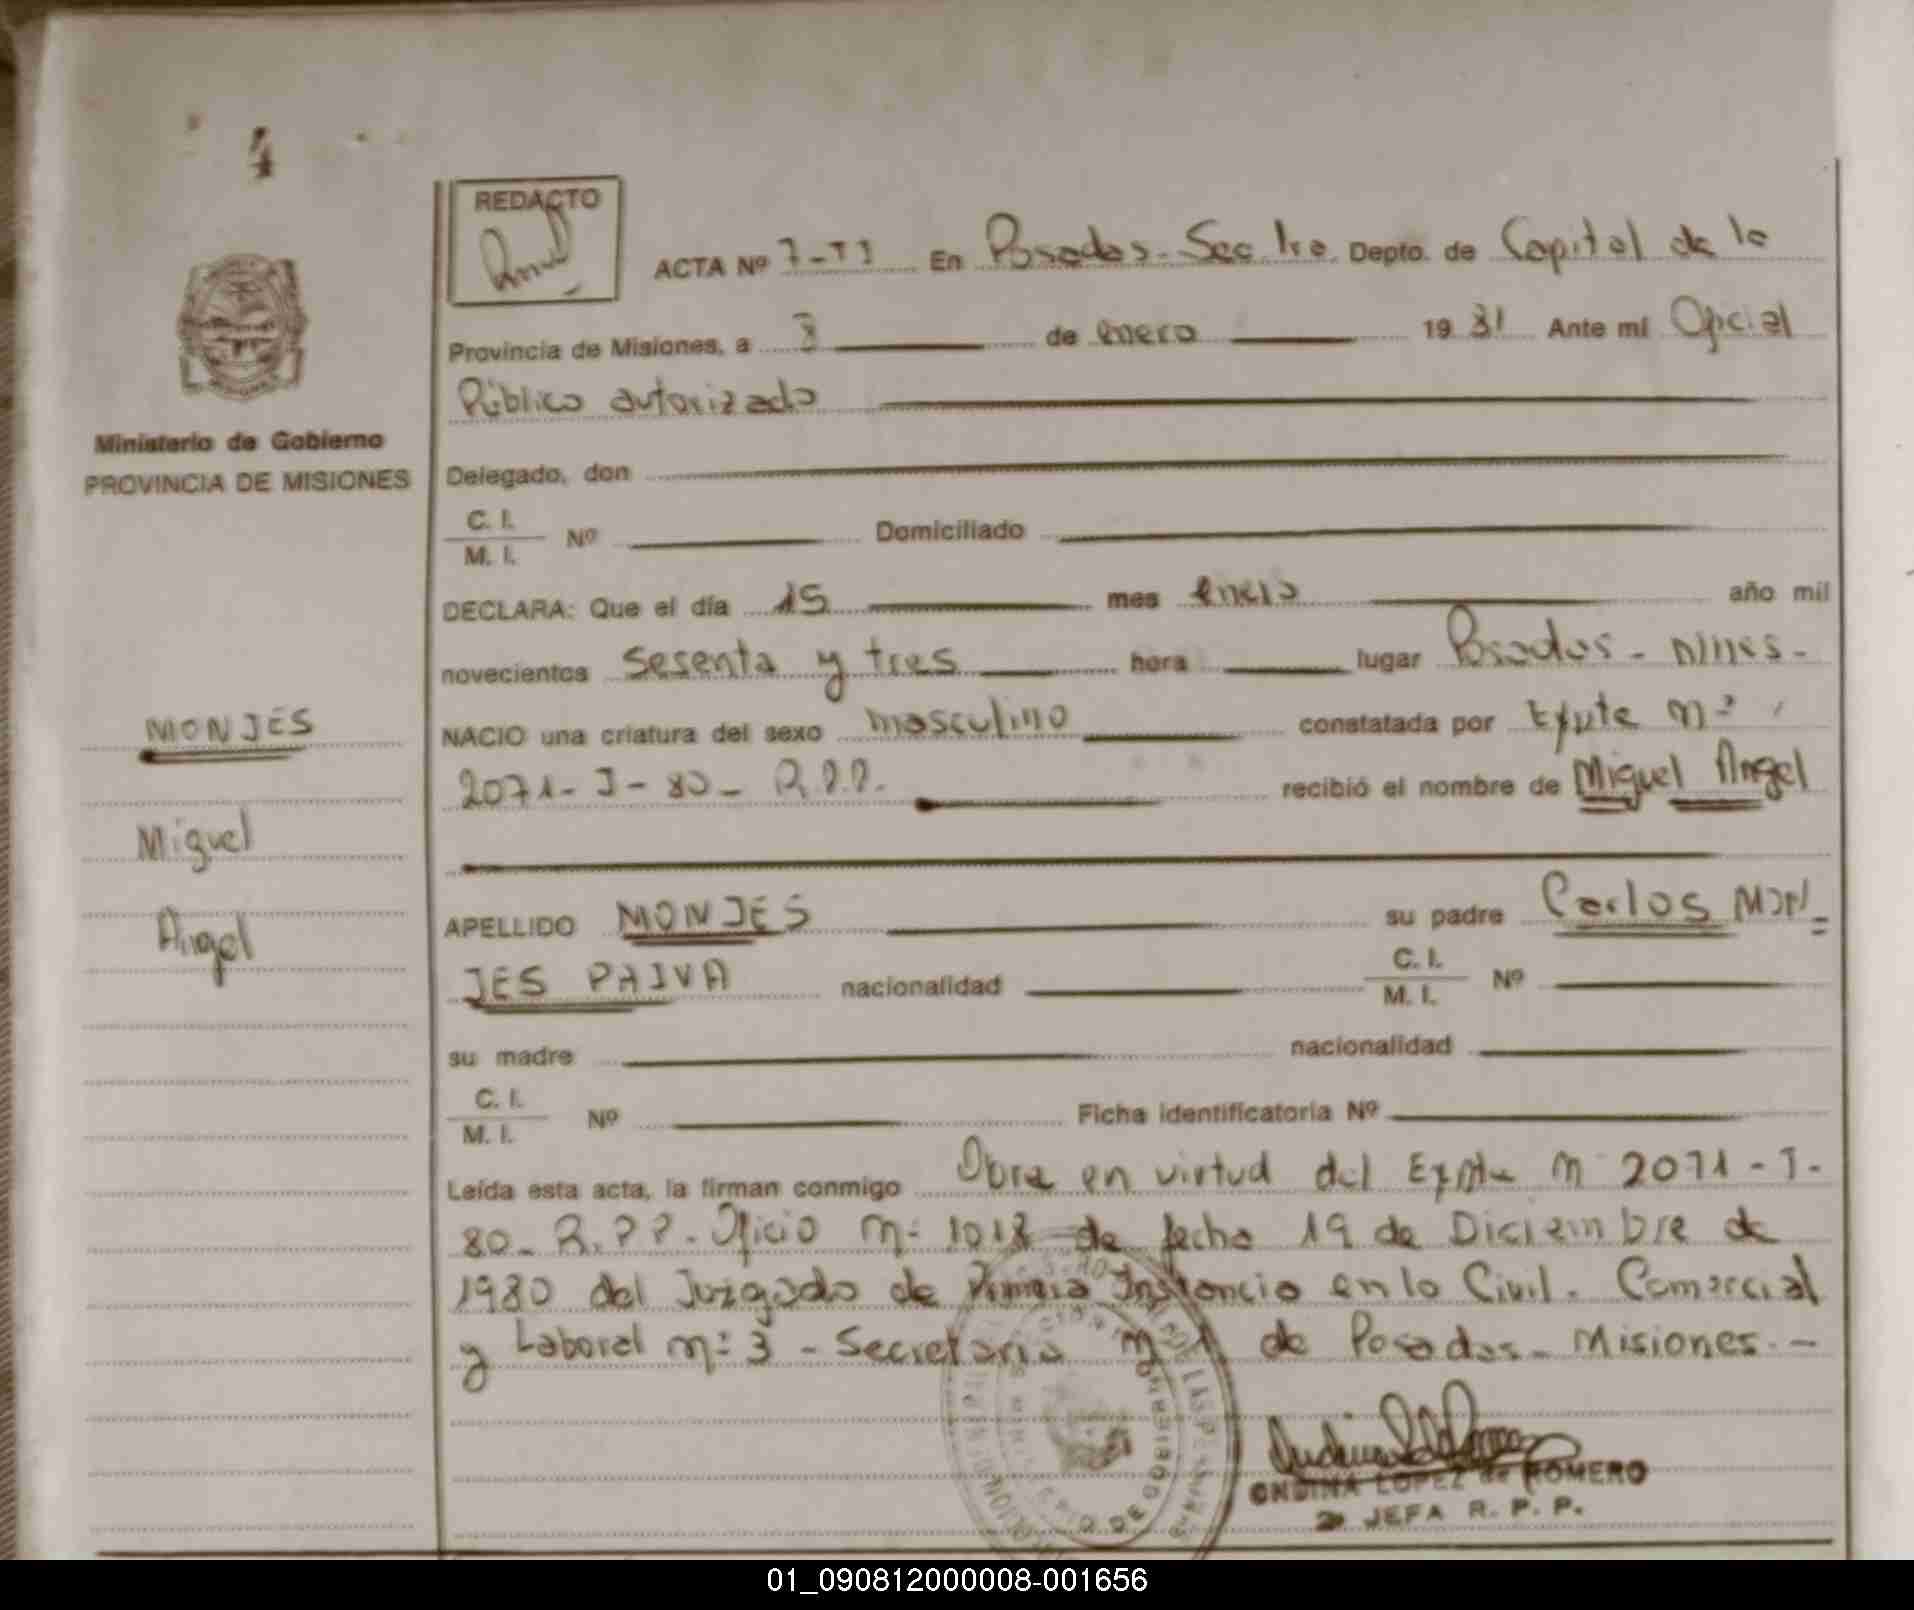 4
REDACTO
ACTA Nº 7-TI En Posadas-Sec 1ra. Depto. de Capital de la
Provincia de Misiones, a 8 de enero 1981 Ante mí Oficial
Público autorizado
Ministerio de Gobierno
PROVINCIA DE MISIONES
Delegado, don
C. I.
M. I. Nº Domiciliado
DECLARA: Que el día 15 mes enero año mil
novecientos sesenta y tres hora lugar Posadas - Mnes -
NACIO una criatura del sexo masculino constatada por Expte nº
2071- J - 80 - R.P.P. recibió el nombre de Miguel Angel
MONJES
Miguel
Angel
APELLIDO MONJES su padre Carlos MON=
JES PAIVA nacionalidad C. I. M. I. Nº
su madre nacionalidad
C. I.
M. I. Nº Ficha identificatoria Nº
Leída esta acta, la firman conmigo Obra en virtud del Expte nº 2071 - J-
80 - R.P.P. - Oficio nº 1018 de fecha 19 de Diciembre de
1980 del Juzgado de Primera Instancia en lo Civil. Comercial
y Laboral nº 3 - Secretaria nº 1 de Posadas - Misiones. -
ONDINA LOPEZ de ROMERO
JEFA R. P. P.
01_090812000008-001656